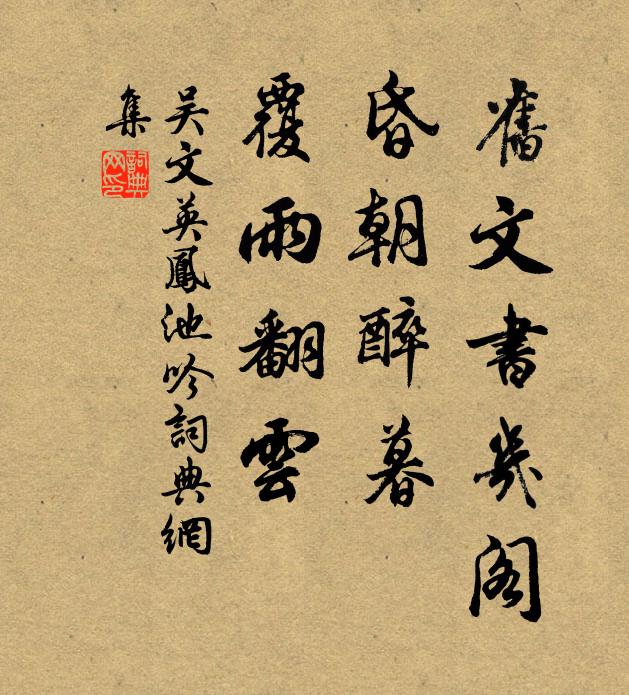 舊文書幾閣
昏朝醉暮
覆雨翻雲
吴文英鳳池吟詞典網
集
詞典
网印